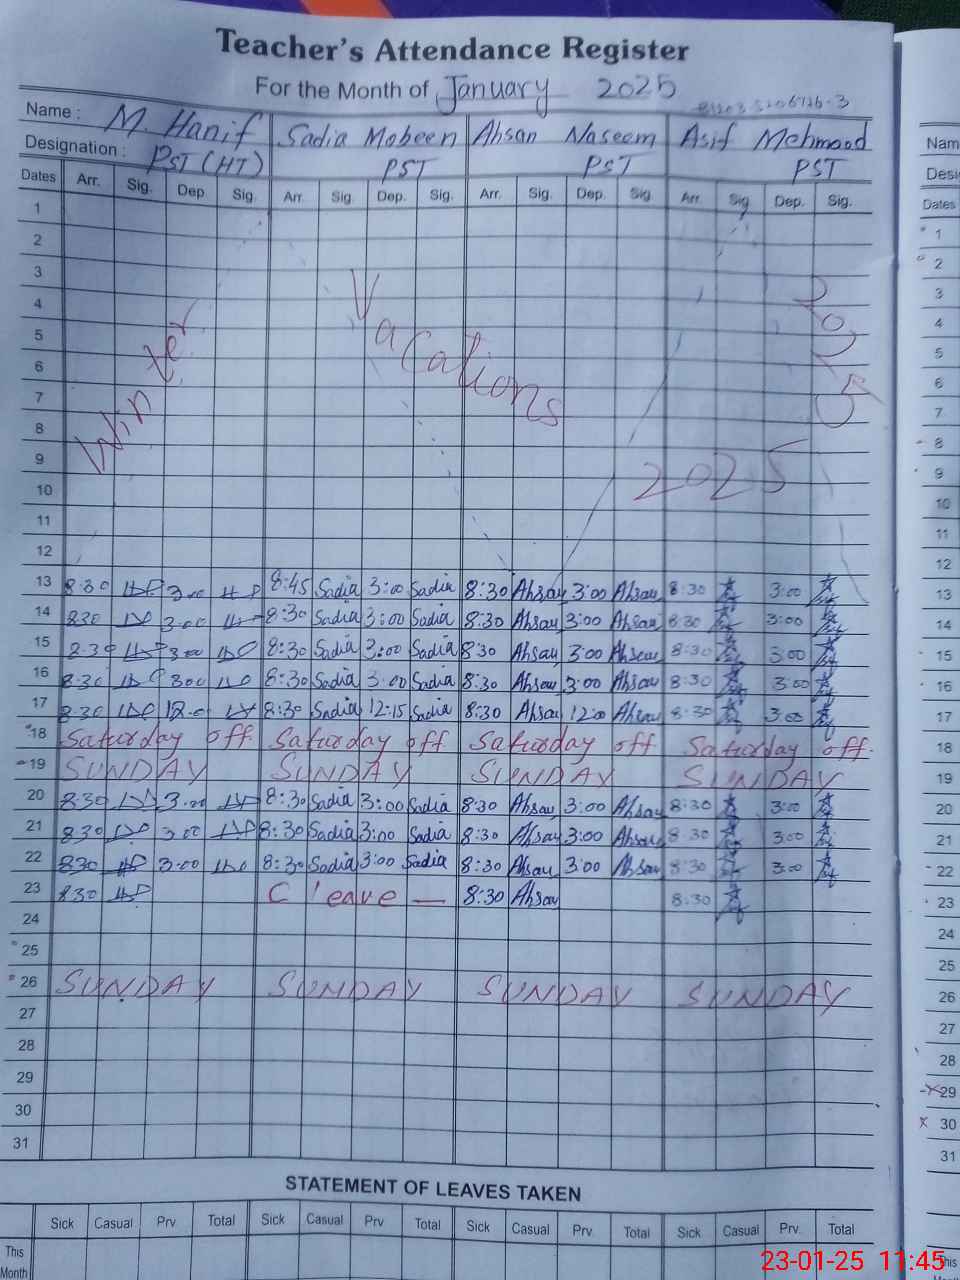 Teacher's Attendance Register
For the Month of January 2025
Name : M. Hanif Sadia Mobeen Ahsan Naseem Asif Mehmood
Designation : PST (HT) PST PST PST
Dates Arr. Sig. Dep Sig. Arr. Sig. Dep. Sig. Arr. Sig. Dep. Sig. Arr. Sig. Dep. Sig.
1
2
3
4
5
6
7
8
9
10
11
12
Winter Vacations 2025
2025
13 8:30 3:00 8:45 Sadia 3:00 Sadia 8:30 Ahsan 3:00 Ahsan 8:30 3:00
14 830 3:00 8:30 Sadia 3:00 Sadia 8:30 Ahsan 3:00 Ahsan 8:30 3:00
15 8:30 3:00 8:30 Sadia 3:00 Sadia 8:30 Ahsan 3:00 Ahsan 8:30 3:00
16 8:30 300 8:30 Sadia 3:00 Sadia 8:30 Ahsan 3:00 Ahsan 8:30 3:00
17 8:30 12:0 8:30 Sadia 12:15 Sadia 8:30 Ahsan 12:00 Ahsan 8:30 3:00
18 Saturday off Saturday off Saturday off Saturday off.
19 SUNDAY SUNDAY SUNDAY SUNDAY
20 8:30 3:00 8:30 Sadia 3:00 Sadia 8:30 Ahsan 3:00 Ahsan 8:30 3:00
21 830 3:00 8:30 Sadia 3:00 Sadia 8:30 Ahsan 3:00 Ahsan 8:30 3:00
22 830 3:00 8:30 Sadia 3:00 Sadia 8:30 Ahsan 3:00 Ahsan 8:30 3:00
23 830 C leave — 8:30 Ahsan 8:30
24
25
26 SUNDAY SUNDAY SUNDAY SUNDAY
27
28
29
30
31
STATEMENT OF LEAVES TAKEN
Sick Casual Prv. Total Sick Casual Prv Total Sick Casual Prv. Total Sick Casual Prv. Total
This Month
Nam
Desi
Dates
1
2
3
4
5
6
7
8
9
10
11
12
13
14
15
16
17
18
19
20
21
22
23
24
25
26
27
28
29
30
31
This
23-01-25 11:45